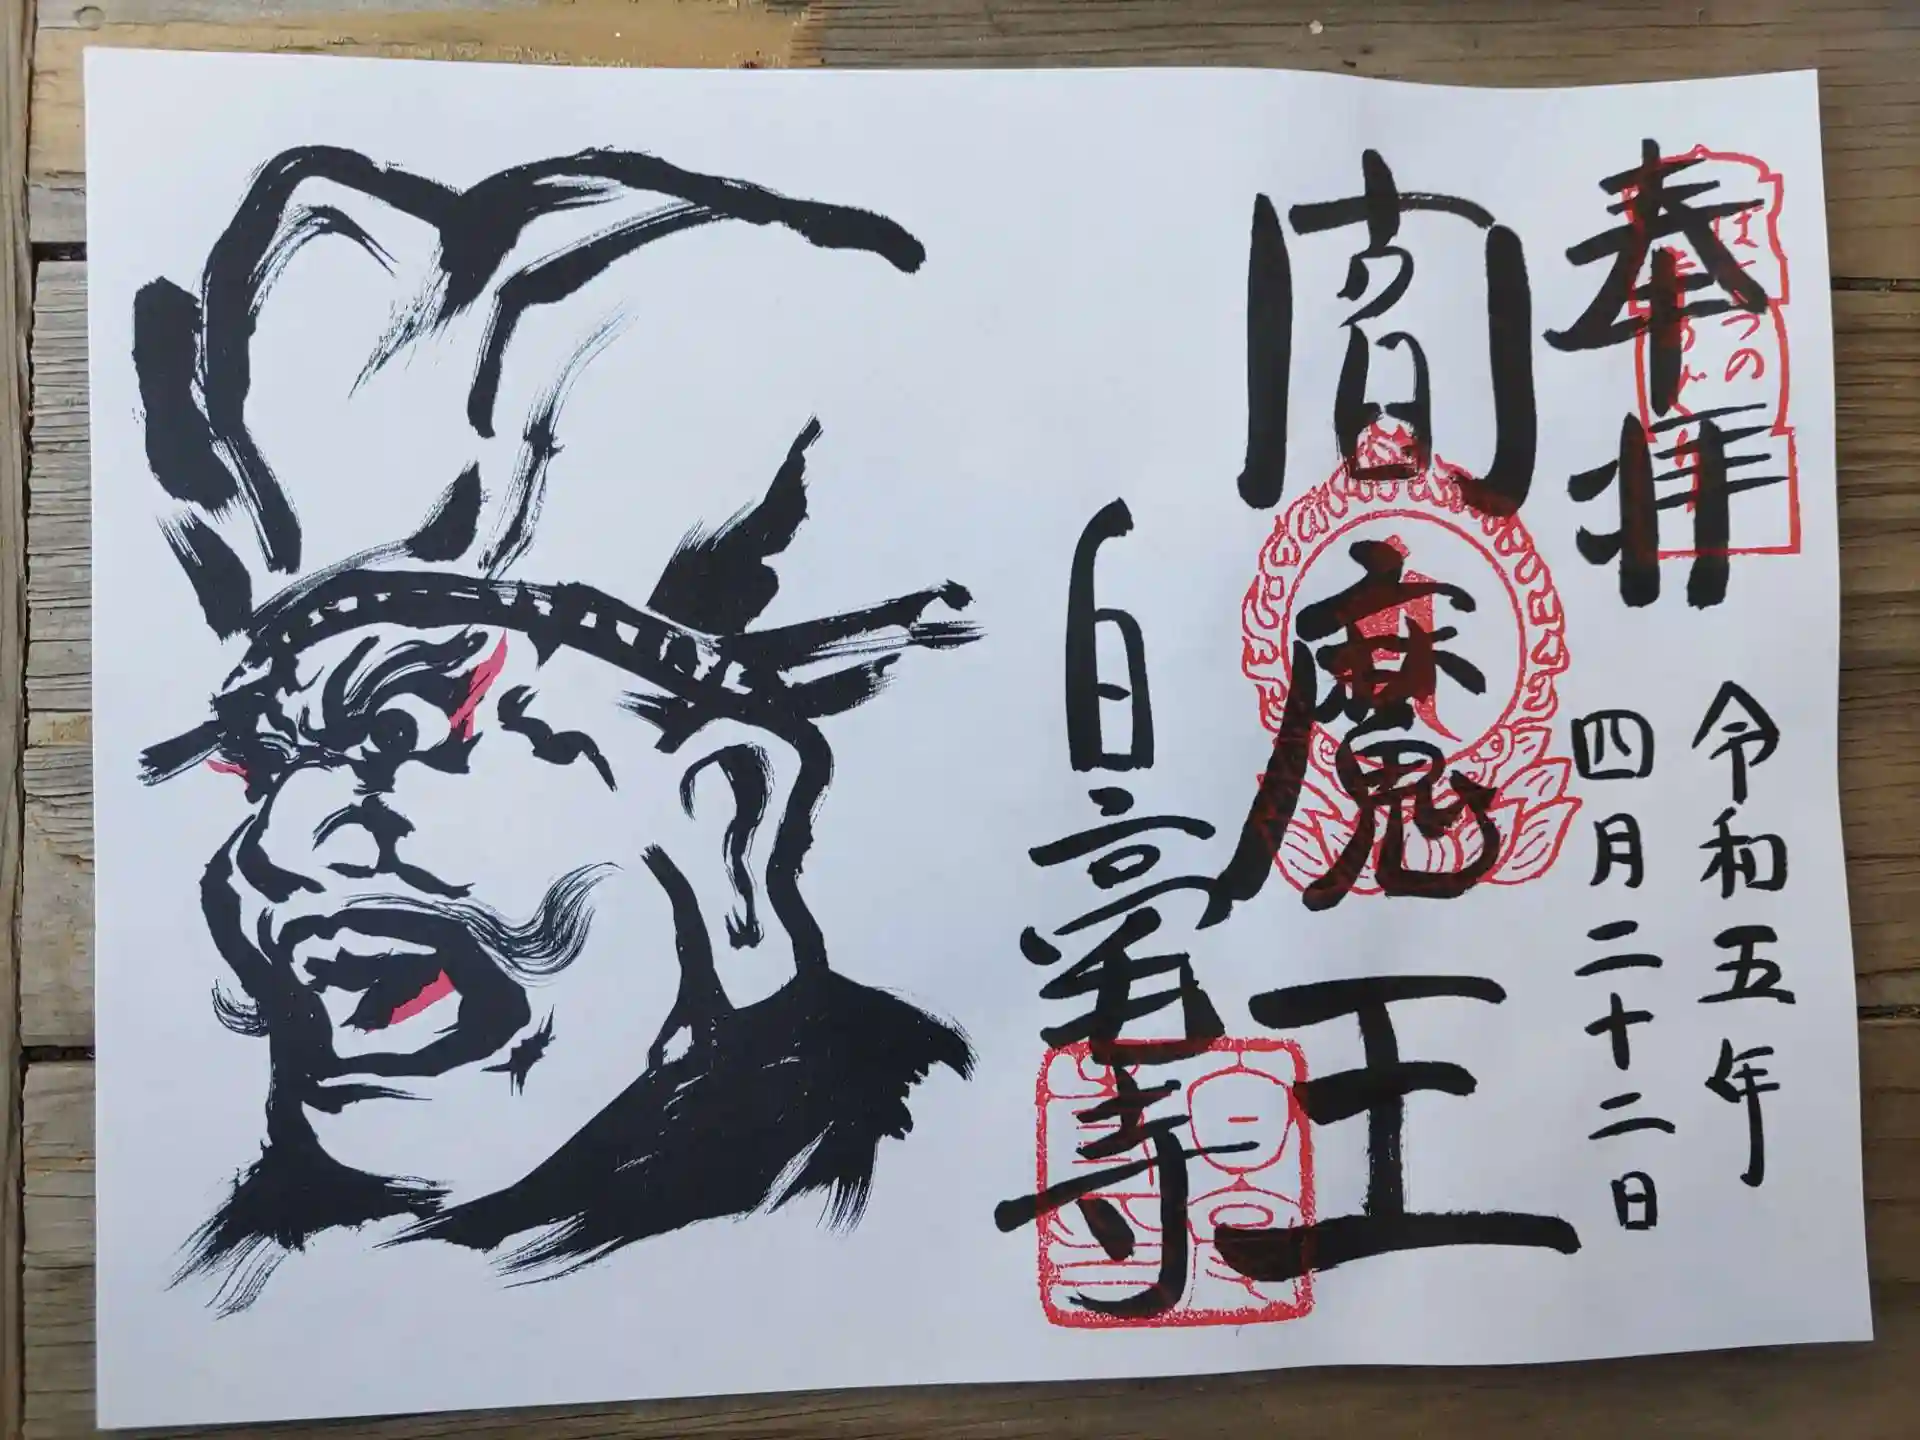 奉拝
令和五年
四月二十二日
閻魔王
白毫寺